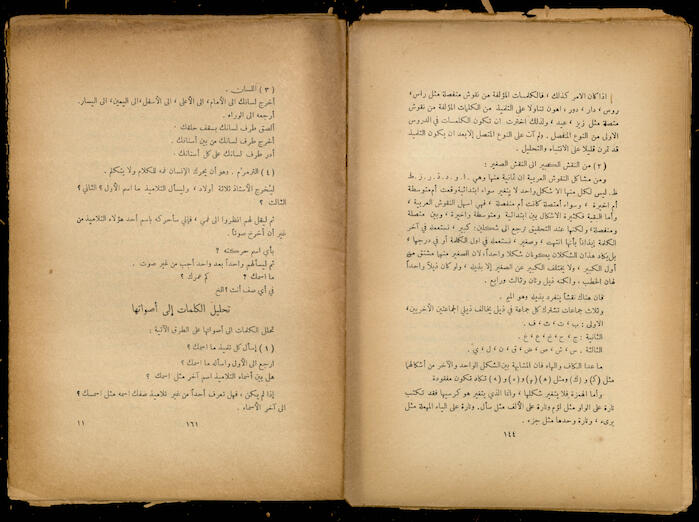 إذا كان الامر كذلك ، فالكلمات المؤلفة من نقوش منفصلة مثل راس،
روس ، دار ، دور ، أهون تناولا على التلميذ من الكلمات المؤلفة من نقوش
متصلة مثل زيز ، عيد ، ولذلك اخترت ان تكون الكلمات في الدروس
الاولى من النوع المنفصل . ولم آت على النوع المتصل إلا بعد ان يكون التلميذ
قد قرن قليلا على الانتساء والتحليل .
(٢) من النقش الكبير الى النقش الصغير :
ومن مشاكل النقوش العربية ان ثمانية منها وهي . ا . و . د . ذ . ر . ز . ط
ظ . ليس لكل منها الا شكل واحد لا يتغير سواء ابتدائية وقعت أم متوسطة
أم اخيرة ، وسواء أمتصلة كانت أم منفصلة ، فهي اسهل النقوش العربية ،
وأما البقية فكثيرة الاشكال بين ابتدائية ومتوسطة واخيرة ، وبين متصلة
ومنفصلة، ولكنها عند التحقيق ترجع الى شكلين: كبير ، نستعمله في آخر
الكلمة إيذاناً بأنها انتهت ، وصغير ، نستعمله في اول الكلمة أو في درجها ،
بل يكاد هذان الشكلان يكونان شكلا واحداً، لان الصغير منها مشتق من
أول الكبير ، ولا يختلف الكبير عن الصغير إلا بذيله ، ولو كان ذيلاً واحداً
لهان الخطب ، ولكنه ذيل وثان وثالث ورابع .
فان هناك نقشاً ينفرد بذيله وهو الميم .
وثلاث جماعات تشترك كل جماعة في ذيل يخالف ذيلي الجماعتين الآخريين،
الاولى : ب ، ت ، ث ، ف .
الثانية : ج ، ح ، خ ، ع ، غ .
الثالثة . س ، ش ، ص ، ض ، ق ، ن ، ل ، ي .
ما عدا الكاف والهاء فان المشابهة بين الشكل الواحد والآخر من أشكالهما
مثل (ك) و (ك) ومثل (ه) (م) و (ه) و (ه) تكاد تكون مفقودة
وأما الهمزة فلا يتغير شكلها ، وانما الذي يتغير هو كرسيها فقد تكتب
تارة على الواو مثل لؤم وتارة على الألف مثل سأل. وتارة على الياء المهملة مثل
بريء ، وتارة وحدها مثل جزء .
١٤٤
(٣) اللسان .
أخرج لسانك الى الأمام، الى الأعلى ، الى الأسفل، الى اليمين، الى اليسار.
أرجعه الى الوراء .
ألصق طرف لسانك بسقف حلقك .
أخرج طرف لسانك من بين أسنانك .
أدر طرف لسانك على كل أسنانك .
(٤) الترمرم . وهو أن يحرك الإنسان فمه للكلام ولا يتكلم .
ليُخرج الأستاذ ثلاثة أولاد ، وليسأل التلاميذ ما اسم الأول ؟ الثاني ؟
الثالث ؟
ثم ليقل لهم انظروا الى فمي ، فإني سأحركه باسم أحد هؤلاء التلاميذ من
غير أن أخرج صوتاً .
بأي اسم حركته ؟
ثم ليسألهم واحداً بعد واحد أجب من غير صوت .
ما اسمك ؟ كم عمرك ؟
في أي صف أنت؟ الخ
تحليل الكلمات إلى أصواتها
تحلل الكلمات الى أصواتها على الطرق الآتية :
(١) إسأل كل تلميذ ما اسمك ؟
ارجع الى الأول واسأله ما اسمك ؟
هل بين أسماء التلاميذ اسم آخر مثل اسمك ؟
إذا لم يكن ، فهل تعرف أحداً من غير تلاميذ صفك اسمه مثل اسمك ؟
الى آخر الأسماء .
١٦١
١١